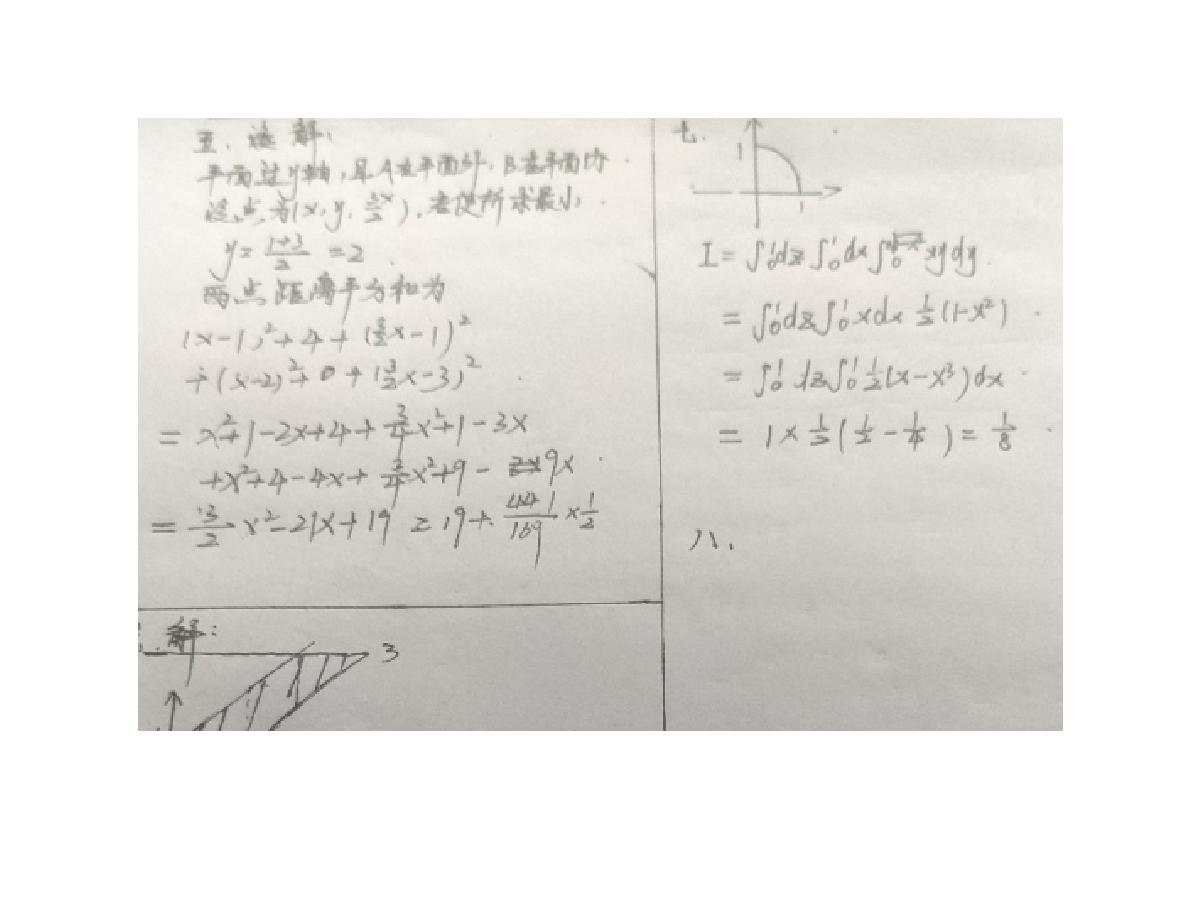 五、 解:
平面过y轴,且A在平面外,B在平面内
设点为(x,y,3x/2),若使所求最小
y=(1+3)/2=2
两点距离平方和为
(x-1)²+4+(3/2x-1)²
+(x-2)²+0+(3/2x-3)²
=x²+1-2x+4+3/4x²+1-3x
+x²+4-4x+3/4x²+9-9x
=13/2x²-21x+19=19+441/169×1/2
解:
3
七.
1
1
I=∫₀¹dz∫₀¹dx∫₀^√(1-x²)xydy
=∫₀¹dz∫₀¹xdx 1/2(1-x²)
=∫₀¹dz∫₀¹1/2(x-x³)dx
=1×1/2(1/2-1/4)=1/8
八.